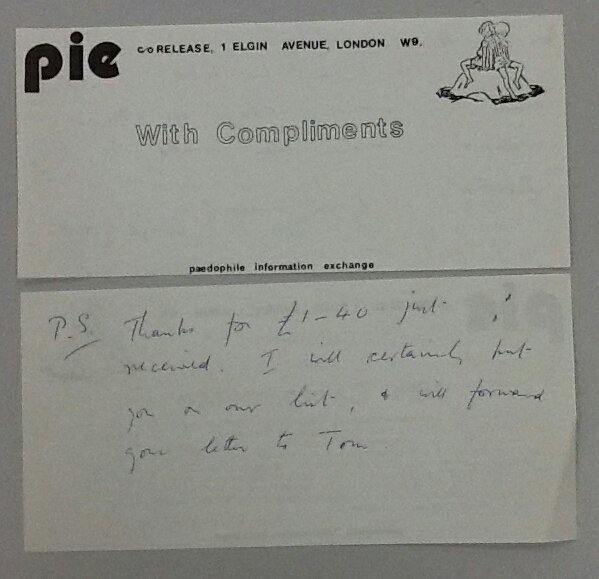 pie c/o RELEASE, 1 ELGIN AVENUE, LONDON W9.
With Compliments
paedophile information exchange
P.S. Thanks for £1-40 just
received. I will certainly put
you on our list, & will forward
your letter to Tom.